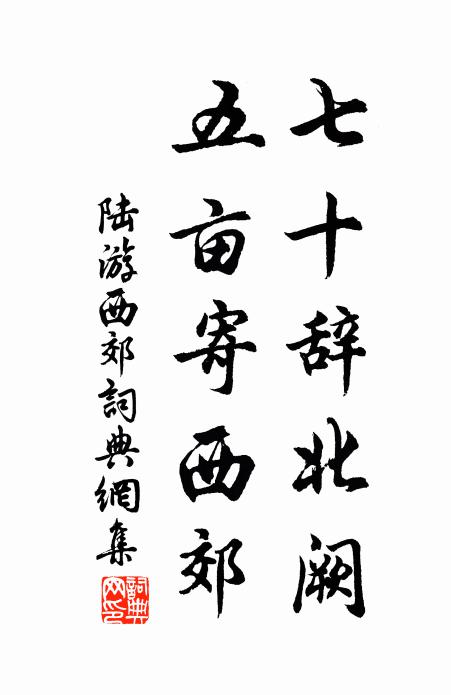 七十辞北阙
五亩寄西郊
陆游西郊詞典網集
詞典網印